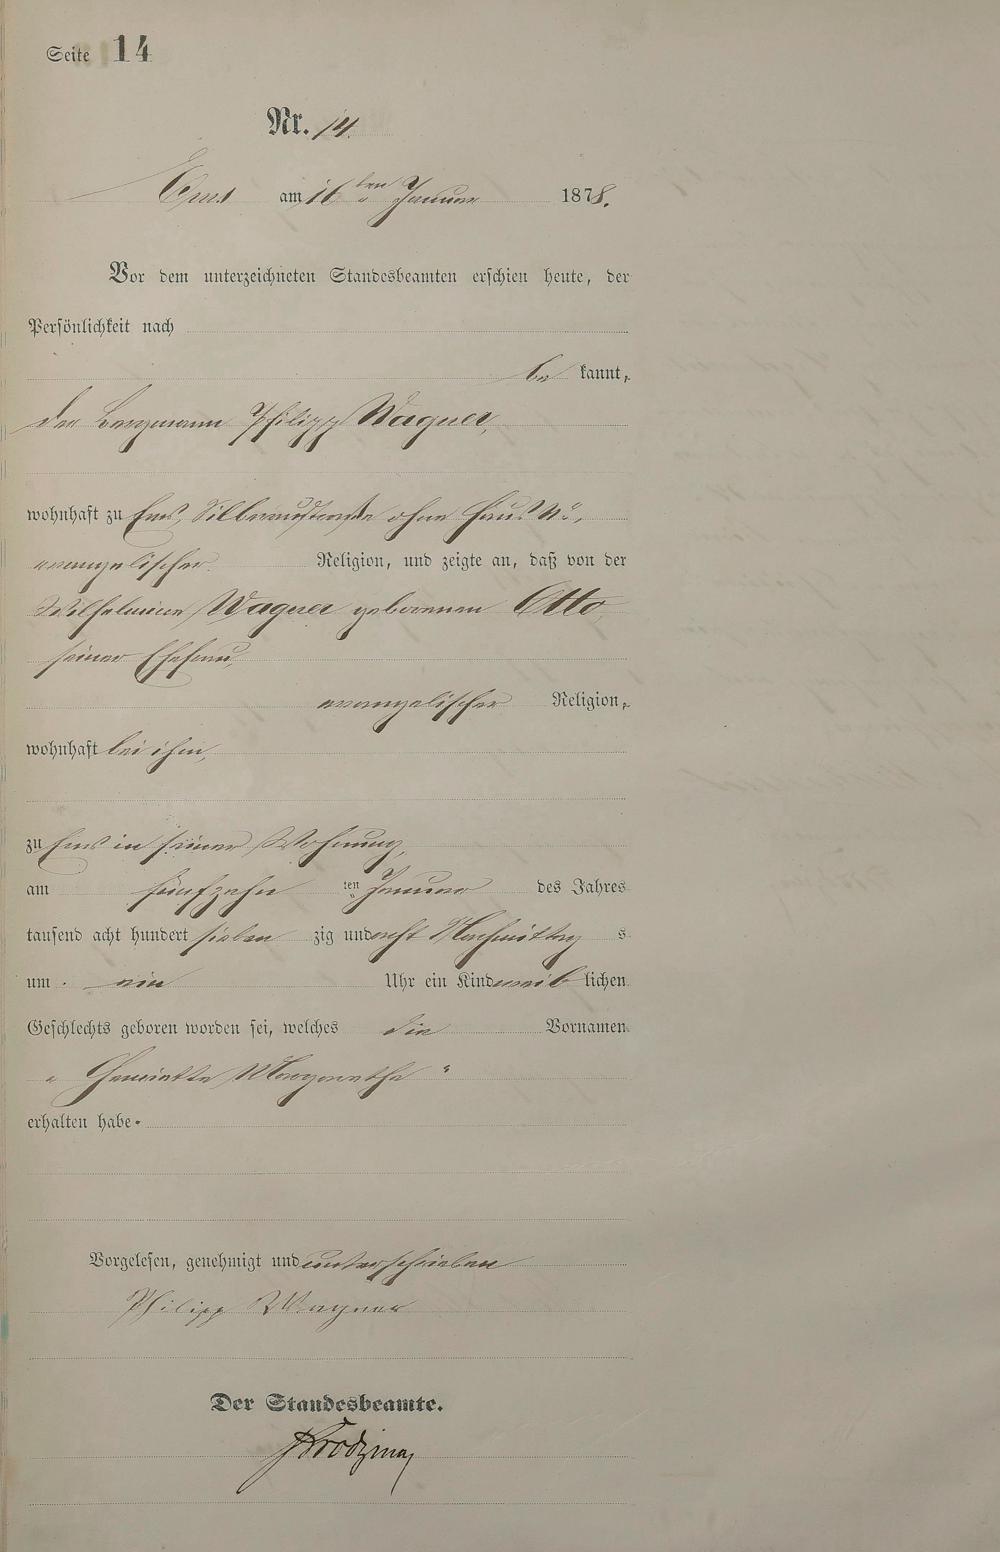 Seite 14
Nr. 14.
Ems am 16ten Januar 1878.
Vor dem unterzeichneten Standesbeamten erschien heute, der
Persönlichkeit nach
be kannt,
der Bergmann Philipp Wagner,
wohnhaft zu Ems, Silberaustraße ohne Haus No.,
evangelischer Religion, und zeigte an, daß von der
Wilhelmine Wagner geborenen Otto,
seiner Ehefrau,
evangelischer Religion,
wohnhaft bei ihm,
zu Ems in seiner Wohnung,
am fünfzehn ten Januar des Jahres
tausend acht hundert sieben zig und acht Nachmittag s
um ein Uhr ein Kind weib lichen
Geschlechts geboren worden sei, welches die Vornamen
„ Henriette Margarethe “
erhalten habe.
Vorgelesen, genehmigt und unterschrieben
Philipp Wagner
Der Standesbeamte.